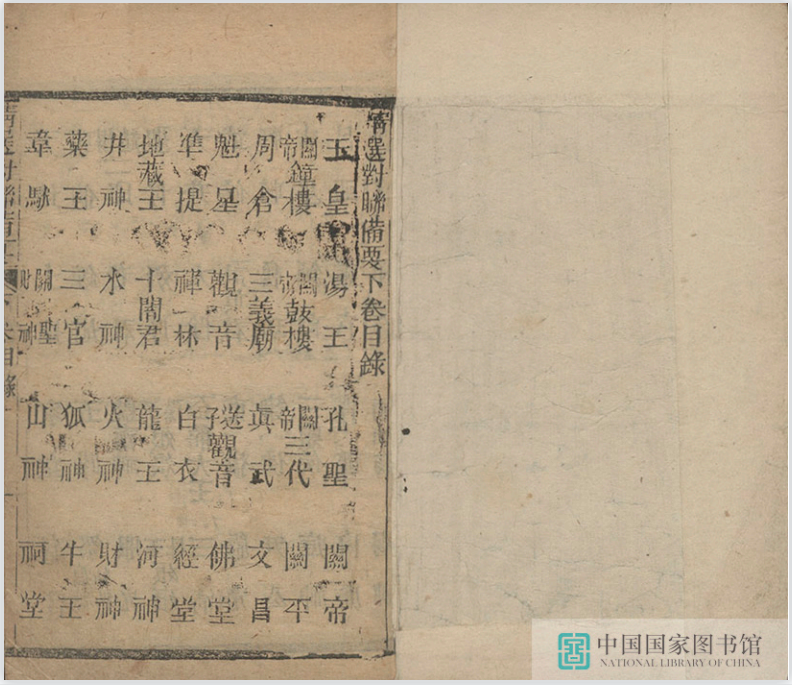 精選對聯備要下卷目錄
玉皇 湯王 孔聖 關帝
關帝鐘樓 關帝鼓樓 關帝三代 關平
周倉 三義廟 真武 文昌
魁星 觀音 送子觀音 佛堂
準提 禪林 白衣 經堂
地藏王 十閻君 龍王 河神
井神 水神 火神 財神
藥王 三官 狐神 牛王
韋馱 關聖財神 山神 祠堂
中国国家图书馆
NATIONAL LIBRARY OF CHINA